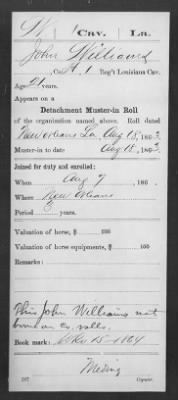 W 1 Cav. La.
John Williams
, Co. , 1 Reg't Louisiana Cav.
Age 21 years.
Appears on a
Detachment Muster-in Roll
of the organization named above. Roll dated
New Orleans La, Aug 18, 1863.
Muster-in to date Aug 18, 1863.
Joined for duty and enrolled:
When Aug 7, 186 .
Where New Orleans
Period 3 years.
Valuation of horse, $ 100
Valuation of horse equipments, $ 100
Remarks:
This John Williams not
borne on Co. rolls.
Book mark:
Copyist.